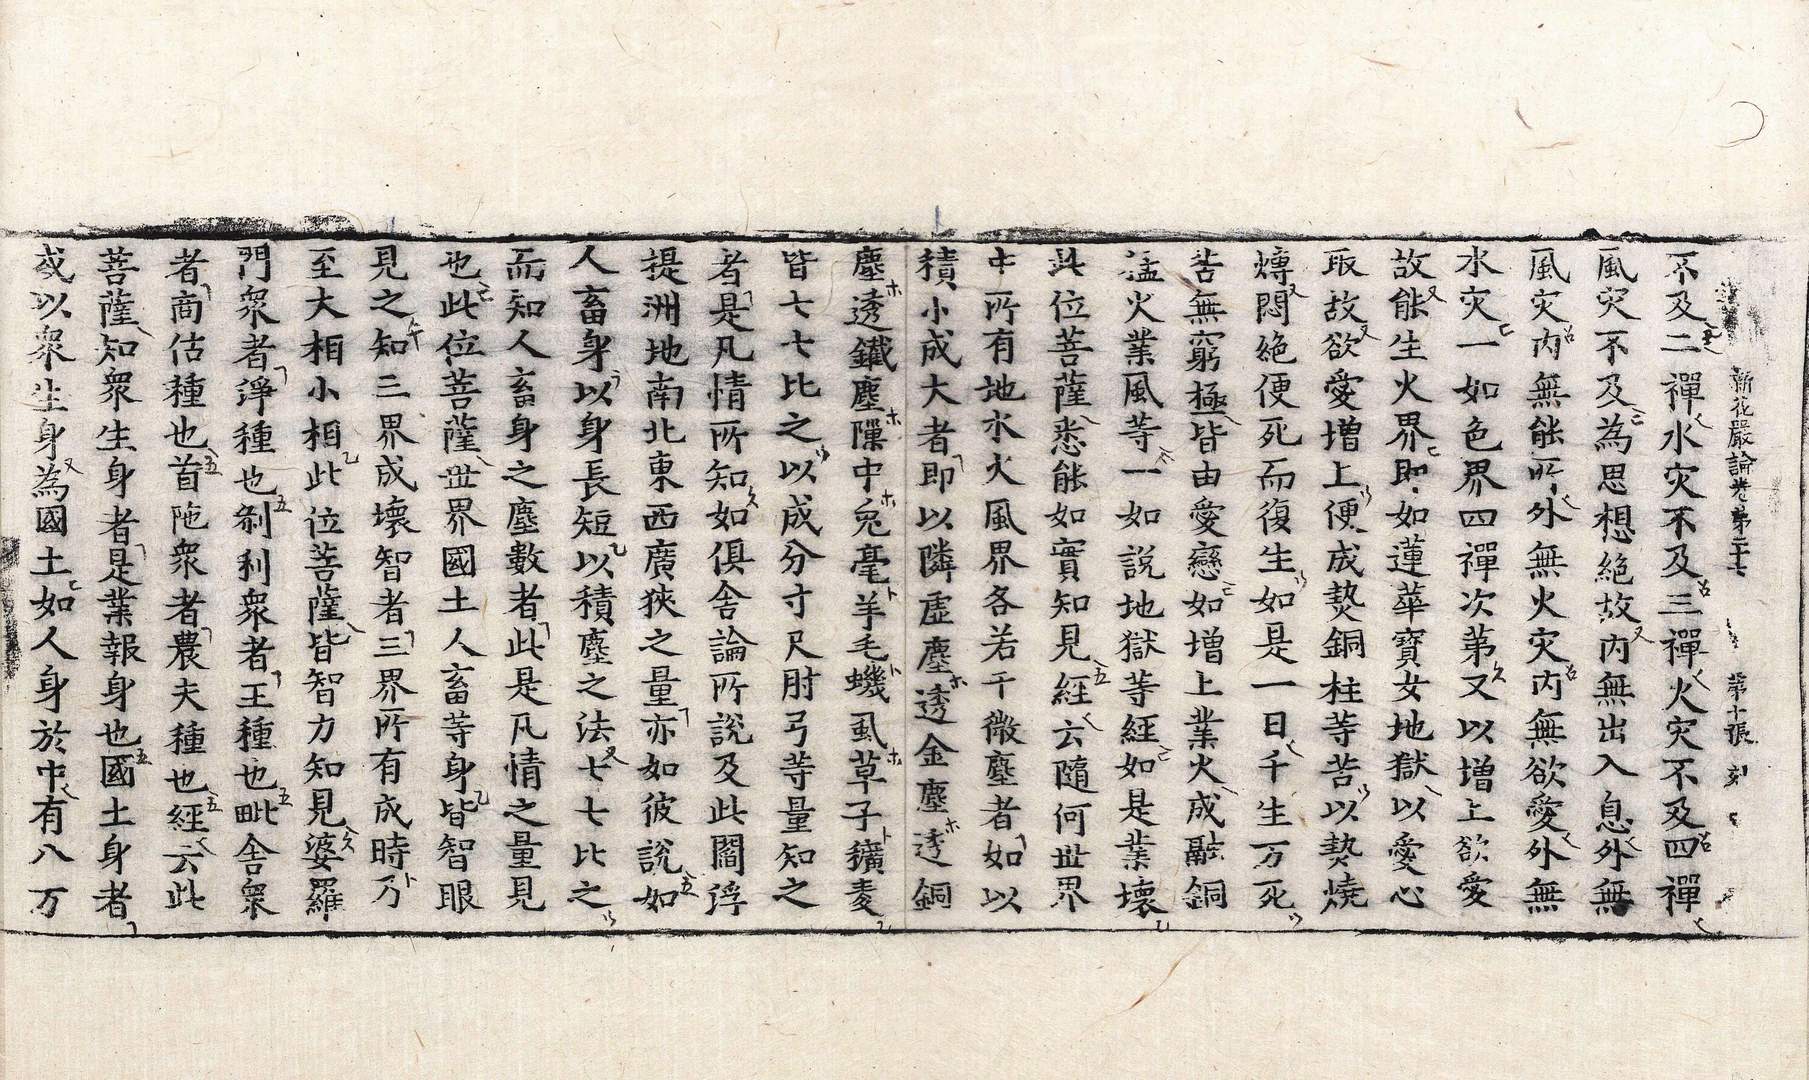 新花嚴論卷第二十七 第十張 刻
不及二禪水灾不及三禪火灾不及四禪
風灾不及為思想絶故內無出入息外無
風灾內無能所外無火灾內無欲愛外無
水灾一如色界四禪次第又以增上欲愛
故能生火界即如蓮華寶女地獄以愛心
取故欲愛增上便成𤍠銅柱等苦以𤍠燒
煿悶絶便死而復生如是一日千生万死
苦無窮極皆由愛戀如增上業火成融銅
猛火業風等一如說地獄等經如是業壞
此位菩薩悉能如實知見經云隨何世界
中所有地水火風界各若干微塵者如以
積小成大者即以隣虛塵透金塵透銅
塵透鐵塵隟中兔毫羊毛蟣虱草子穬麦
皆七七比之以成分寸尺肘弓等量知之
者是凡情所知如俱舍論所說及此閻浮
提洲地南北東西廣狹之量亦如彼說如
人畜身以身長短以積塵之法七七比之
而知人畜身之塵數者此是凡情之量見
也此位菩薩世界國土人畜等身皆智眼
見之知三界成壞智者三界所有成時乃
至大相小相此位菩薩皆智力知見婆羅
門衆者淨種也刹利衆者王種也毗舍衆
者商估種也首陁衆者農夫種也經云此
菩薩知衆生身者是業報身也國土身者
或以衆生身為國土如人身於中有八万